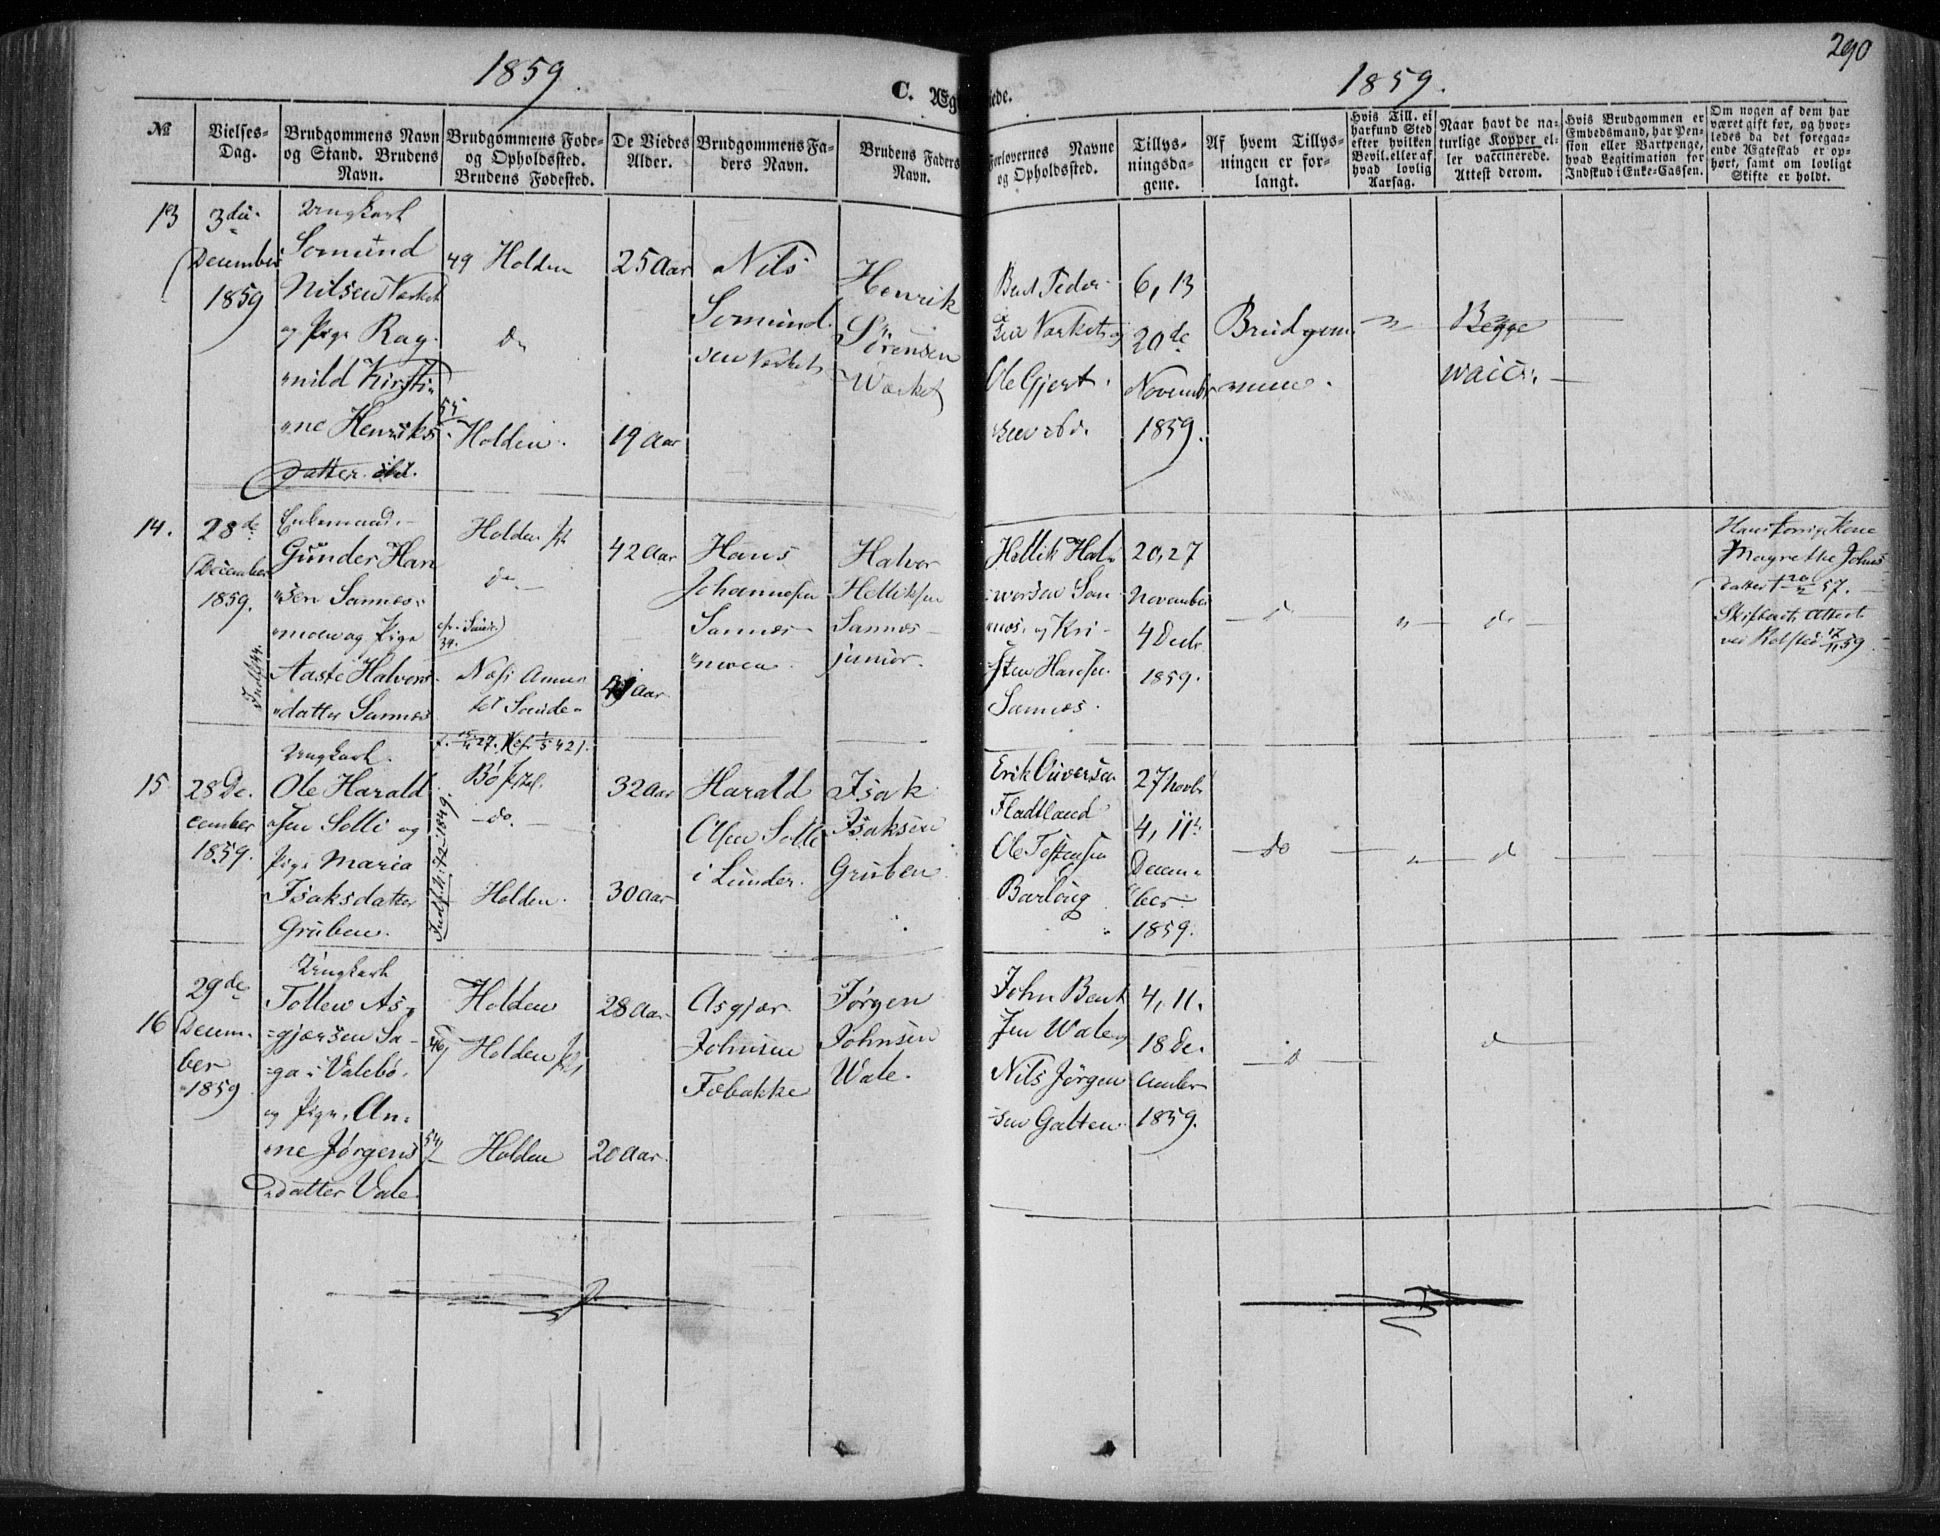 1859.
C. Ægteviede.
1859.
290
№
Vielses-
Dag.
Brudgommens Navn
og Stand. Brudens
Navn.
Brudgommens Føde-
og Opholdssted.
Brudens Fødested.
De Viedes
Alder.
Brudgommens Fa-
ders Navn.
Brudens Faders
Navn.
Forlovernes Navne
og Opholdssted.
Tillys-
ningsda-
gene.
Af hvem Tillys-
ningen er for-
langt.
Hvis Till. ei
har fund Sted
efter hvilken
Bevil. eller af
hvad lovlig
Aarsag.
Naar havt de na-
turlige Kopper el-
ler vaccinerede.
Attest derom.
Hvis Brudgommen er
Embedsmand, har Pen-
sion eller Vartpenge,
hvad Legitimation for
Indskud i Enke-Cassen.
Om nogen af dem har
været gift før, og hvor-
ledes da det foregaa-
ende Ægteskab er op-
hørt, samt om lovligt
Skifte er holdt.
13
3die
December
1859
Ungkarl
Somund
Nilsen Værket
og Pige Rag-
nild Kirsti-
ne Henriks
datter ibd.
49 Holden
do
55 Holden.
25 Aar
19 Aar
Nils
Somund-
sen Verket
Henrik
Sørensen
Værket
Bent Peder-
sen Værket og
Ole Gjert-
sen ibd.
6, 13
20de
November
1859.
Brudgom-
mene.
"
Begge
vacc.
14.
28de
December
1859.
Enkemand
Gunder Han
sen Sannes-
moen og Pige
Aaste Halvors-
datter Sannes
Indf. 44.
Holden
do
Næsi Annex
til Saude
42 Aar
41 Aar
Hans
Johannesen
Sannes-
moen.
Halvor
Helliksen
Sannes
junior.
Hellik Hal-
vorsen San
nes og Kri-
sten Hansen
Sannes.
20, 27
November
4 Decbr
1859.
d
"
do
Hans forrige Kone
Magrethe Johns
datter † 20/2 57.
Skifteret. Attest
ved Rolsted 59.
15.
28 De-
cember
1859.
Ungkarl.
Ole Harald
sen Solli og
Pige Maria
Isaksdatter
Gruben.
Bø
do.
Holden.
32 Aar
30 Aar
Harald
Olsen Solli
i Lunder.
Isak
Isaksen
Gruben.
Erik Guversen
Fladtland
Ole Tostensen
Barloug
27 Novbr
4, 11te
Decem-
ber
1859.
do
"
d
16
29de
Decem-
ber
1859
Ungkarl
Tollew As-
gjersen Sa-
ga i Valebø.
og Pige An-
ne Jørgens
datter Vale
Holden
46 Holden
54 Holden
28 Aar
20 Aar.
Asgjer
Johnsen
Tobakke
Jørgen
Johnsen
Wale.
John Bent
sen Wale og
Nils Jørgen
sen Galten.
4, 11.
18 De-
cember
1859.
d
d